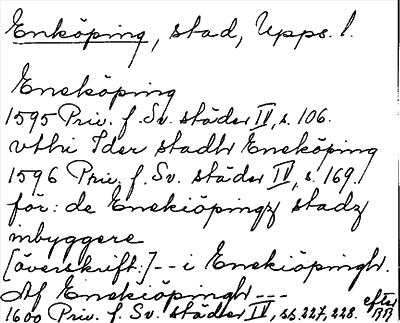 Enköping, stad, Upps. l.
Eneköping
1595 Priv. f. Sv. städer IV, s. 106.
vthi Ider stadh Eneköping
1596 Priv. f. Sv. städer IV, s. 169.
för: de Enekiöpingz stadz
inbyggere
[överskrift:]-- i Enekiöpingh.
Af Enekiöpingh ---
1600 Priv. f. Sv. städer IV, ss. 227, 228. efter BB